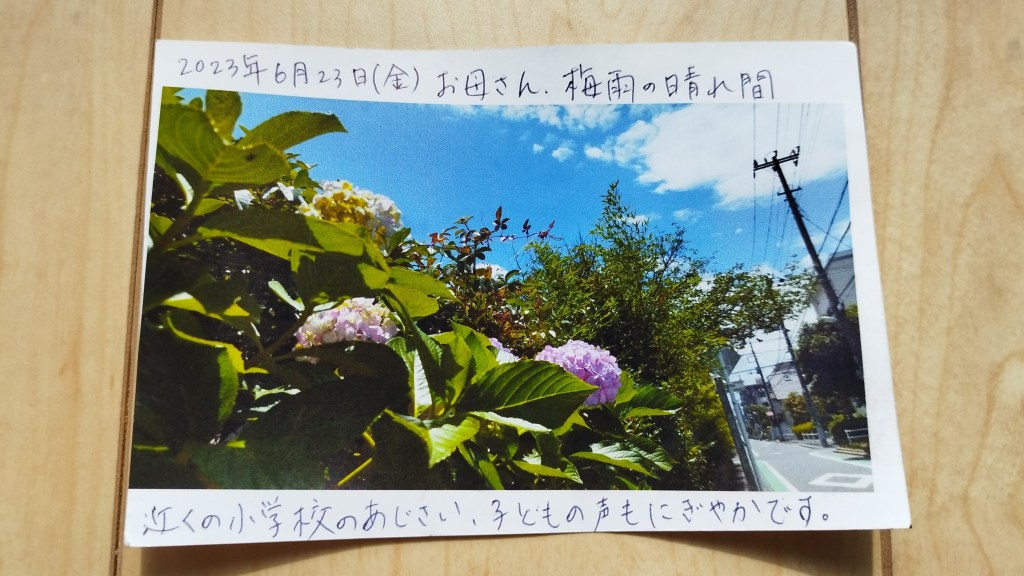 2023年6月23日(金) お母さん、梅雨の晴れ間
近くの小学校のあじさい、子どもの声もにぎやかです。